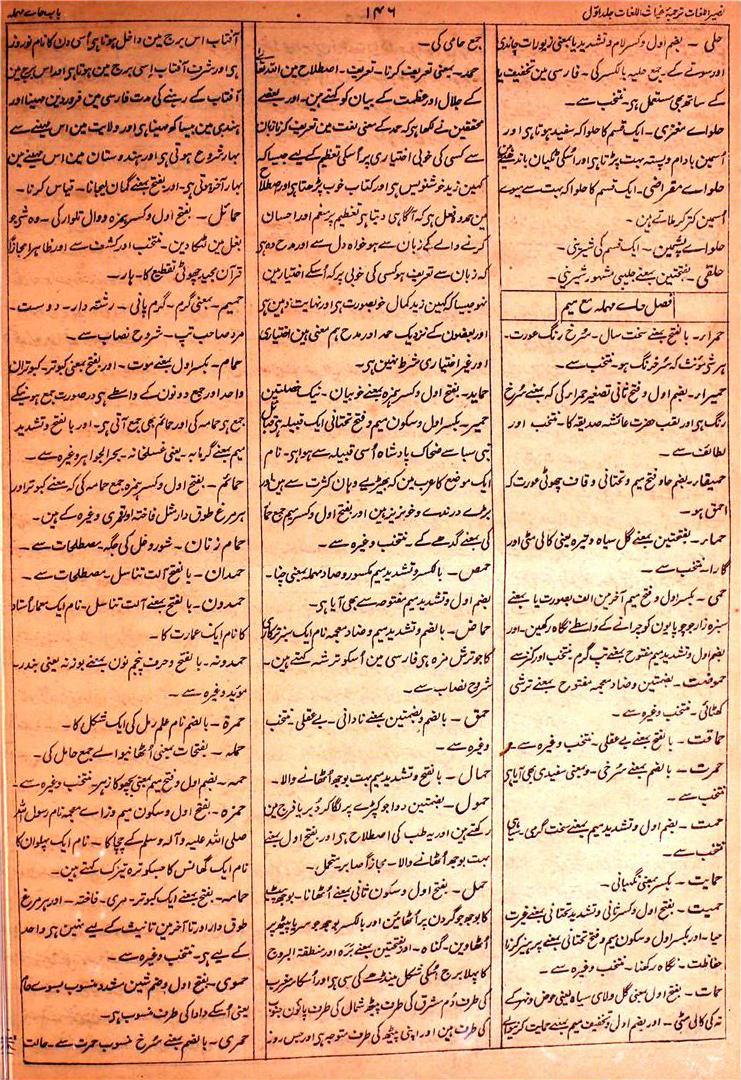 نصیر اللغات ترجمہ غیاث اللغات جلد اول
۱۴۶
باب حاے مہملہ
حلی ۔ بضم اول و کسر لام و تشدید یا بمعنی زیورات چاندی
اور سونے کے۔ جمع حلیہ بالکسر کی۔ فارسی مین تخفیف یا
کے ساتھ بھی مستعمل ہی۔ منتخب سے۔
حلواے مغزی۔ ایک قسم کا حلوا کہ سفید ہوتا ہی اور
اُسمین بادام و پستہ بہت پڑتا ہی اور اُسکی ٹکیان باندھتے ہین
حلواے مقراضی۔ ایک قسم کا حلوا کہ بہت سے میوے
اُسمین کتر کر ملاتے ہن۔
حلواے پشمین۔ ایک قسم کی شیرینی۔
حلقی ۔ بفتحتین بمعنے جلیبی مشہور شیرینی۔
فصل حاے مہملہ مع میم
حمراء۔ بالفتح بمعنے سخت سال۔ سُرخ رنگ عورت۔
ہر شی مؤنث کہ سُرخ رنگ ہو۔ منتخب سے۔
حمیراء۔ بضم اول و فتح ثانی تصغیر حمراء کی کہ بمعنے سُرخ
رنگ ہی اور لقب حضرت عائشہ صدیقہ کا۔ منتخب اور
لطائف سے۔
حمیقاء۔ بضم حا و فتح میم و تحتانی و قاف چھوٹی عورت کہ
احمق ہو۔
حماء۔ بفتحتین بمعنے گل سیاہ و تیرہ یعنی کالی مٹی اور
گارا۔ منتخب سے۔
حمی ۔ بکسر اول و فتح میم آخر مین الف بصورت یا بمعنے
سبزہ زار جو چوپایون کو چرانے کے واسطے نگاہ رکھین۔ اور
بضم اول و تشدید میم مفتوح بمعنے تپ گرم۔ منتخب اور کنز سے
حموضت ۔ بضمتین و ضاد معجمہ مفتوح بمعنے ترشی
کھٹائی۔ منتخب وغیرہ سے۔
حماقت ۔ بالفتح بمعنے بے عقلی۔ منتخب وغیرہ سے۔
حمرت ۔ بالضم بمعنے سُرخی۔ و بمعنی سفیدی بھی آیا ہی
منتخب سے۔
حمت ۔ بضم اول و تشدید میم بمعنے سخت گرمی۔
منتخب سے۔
حمایت ۔ بکسر بمعنی نگہبانی۔
حمیت ۔ بفتح اول و کسر ثانی و تشدید تحتانی بمعنے غیرت
حیا۔ اور بکسر اول و سکون میم و فتح تحتانی بمعنے پرہیز کرنا
حفاظت۔ نگاہ رکھنا۔ منتخب وغیرہ سے۔
حمات ۔ بفتح اول بمعنی گل و لای سیاہ یعنی حوض وغیرہ کے
تہ کی کالی مٹی۔ اور بضم اول و تخفیف میم بمعنے حمایت کرنیوالے
جمع حامی کی۔
حمد۔ بمعنی تعریف کرنا۔ تعریف۔ اصطلاح مین اللہ تعالی
کے جلال اور عظمت کے بیان کو کہتے ہین۔ اور بعضے
محققین نے لکھا ہی کہ حمد کے معنی لغت مین تعریف کرنا زبان
سے کسی کی خوبی اختیاری پر اُسکی تعظیم کے لیے جیسا کہ
کہین زید خوشنویس ہی اور کتاب خوب پڑھتا ہی اور اصطلاح
مین حمد وہ فعل ہی کہ آگاہی دیتا ہی تعظیم پر منعم اور احسان
کرنے والے کے زبان سے ہو خواہ دل سے اور مدح وہ ہی
کہ زبان سے تعریف ہو کسی کی خوبی پر کہ اُسکے اختیار مین
نہو جیسا کہ کہین زید کمال خوبصورت ہی اور نہایت ذہین ہی
اور بعضون کے نزدیک حمد اور مدح ہم معنی ہین اختیاری
اور غیر اختیاری شرط نہین ہی۔
حماید۔ بفتح اول و کسر ہمزہ بمعنے خوبیان ۔ نیک خصلتین
حمیر۔ بکسر اول و سکون میم و فتح تحتانی ایک قبیلہ ہی قبائل
بنی سبا سے ضحاک بادشاہ اُسی قبیلہ سے ہوا ہی۔ نام
ایک موضع کا عرب مین کہ بھیڑیے وہان کثرت سے ہین اور
بڑے درندے و خونریز ہین اور بفتح اول و کسر میم جمع حمار
کی بمعنے گدھے کے۔ منتخب وغیرہ سے۔
حمص۔ بالکسر و تشدید میم مکسور و صاد مہملہ بمعنی چنا۔
بضم اول و تشدید میم مفتوحہ سے بھی آیا ہی۔
حماض۔ بالضم و تشدید میم و ضاد معجمہ نام ایک سبز ترکاری
کا جو ترش مزہ ہی فارسی مین اُسکو ترشہ کہتے ہین۔
شروح نصاب سے۔
حمق ۔ بالضم و بضمتین بمعنے نادانی۔ بے عقلی۔ منتخب
وغیرہ سے۔
حمال ۔ بالفتح و تشدید میم بہت بوجھ اُٹھانے والا۔
حمول۔ بضمتین دوا جو کپڑے پر لگا کر دُبر یا فرج مین
رکھتے ہین اور یہ طب کی اصطلاح ہی اور بفتح اول بمعنے
بہت بوجھ اُٹھانے والا۔ مجازاً صابر و متحمل۔
حمل ۔ بفتح اول و سکون ثانی بمعنے اُٹھانا۔ بوجھ پیٹ
کا بوجھ جو گردن پر اُٹھائین اور بالکسر بوجھ جو سر یا پیٹھ پر
اُٹھاوین۔ گناہ۔ اور بفتحتین بمعنے برّہ اور منطقۃ البروج
کا پہلا برج جسکی شکل مینڈھے کی سی ہی اور اُسکا سر مغرب
کی طرف دُم مشرق کی طرف پیٹھ شمال کی طرف پانون جنوب
کی طرف ہین اور اپنی پیٹھ کی طرف متوجہ ہی اور جس روز
آفتاب اس برج مین داخل ہوتا ہی اُسی دن کا نام نوروز
ہی اور شرف آفتاب اِسی برج مین ہوتا ہی اور اِس برج مین
آفتاب کے رہنے کی مدت فارسی مین فروردین مہینا اور
ہندی مین بیساکھ کا مہینا ہی اور ولایت مین اس مہینے سے
بہار شروع ہوتی ہی اور ہندوستان مین اس مہینے مین
بہار آخر ہوتی ہی۔ اور بفتح بمعنے گمان لیجانا۔ قیاس کرنا۔
حمائل ۔ بفتح اول و کسر ہمزہ دوال تلوار کی ۔ وہ شی جو
بغل مین لٹکا دین۔ منتخب اور کشف سے اور ظاہرا مجازاً
قرآن مجید چھوٹی تقطیع کا۔ ہار۔
حمیم۔ بمعنی گرم۔ گرم پانی۔ رشتہ دار۔ دوست۔
مرد صاحب تپ۔ شروح نصاب سے۔
حمام۔ بکسر اول بمعنے موت۔ اور بفتح بمعنی کبوتر۔ کبوتران
واحد اور جمع دونون کے واسطے ہی درصورت جمع ہونیکے
جمع ہی حمامہ کی اور حمائم بھی جمع آتی ہی۔ اور بالفتح و تشدید
میم بمعنے گرمابہ۔ یعنی غسلخانہ۔ بحر الجواہر وغیرہ سے۔
حمائم ۔ بفتح اول و کسر ہمزہ جمع حمامہ کی کہ بمعنے کبوتر اور
ہر مرغ طوق دار مثل فاختہ و قمری وغیرہ کے ہین۔
حمام زنان ۔ شور و غل کی جگہ مصطلحات سے۔
حمدان۔ بالفتح آلت تناسل۔ مصطلحات سے۔
حمدون۔ بالفتح بمعنے آلت تناسل۔ نام ایک معمار اُستاد
کا نام ایک عمارت کا۔
حمدونہ۔ بالفتح و حرف پنجم نون بمعنے بوزنہ یعنی بندر۔
مؤید وغیرہ سے۔
حمرہ ۔ بالضم نام علم رمل کی ایک شکل کا۔
حملہ ۔ بفتحات بمعنی اُٹھانیوالے جمع حامل کی۔
حمہ۔ بضم اول و فتح میم بمعنی بچھو کا زہر۔ منتخب وغیرہ سے۔
حمزہ۔ بفتح اول و سکون میم و زاے معجمہ نام رسول اللہ
صلی اللہ علیہ وآلہ وسلم کے چچا کا۔ نام ایک پہلوان کا
نام ایک گھانس کا جسکو ترہ تیزک کہتے ہین۔
حمامہ۔ بفتح بمعنے ایک کبوتر۔ قمری۔ فاختہ۔ اور ہر مرغ
طوق دار اور تا آخر مین تانیث کے لیے نہین ہی واحد
کے لیے ہی۔ منتخب وغیرہ سے۔
حموی۔ بفتح اول و ضم شین مشدد منسوب بسوے حام
یعنی اُسکے دادا کی طرف منسوب ہی۔
حمری۔ بالضم بمعنے سُرخ منسوب حمرت سے۔ حالت